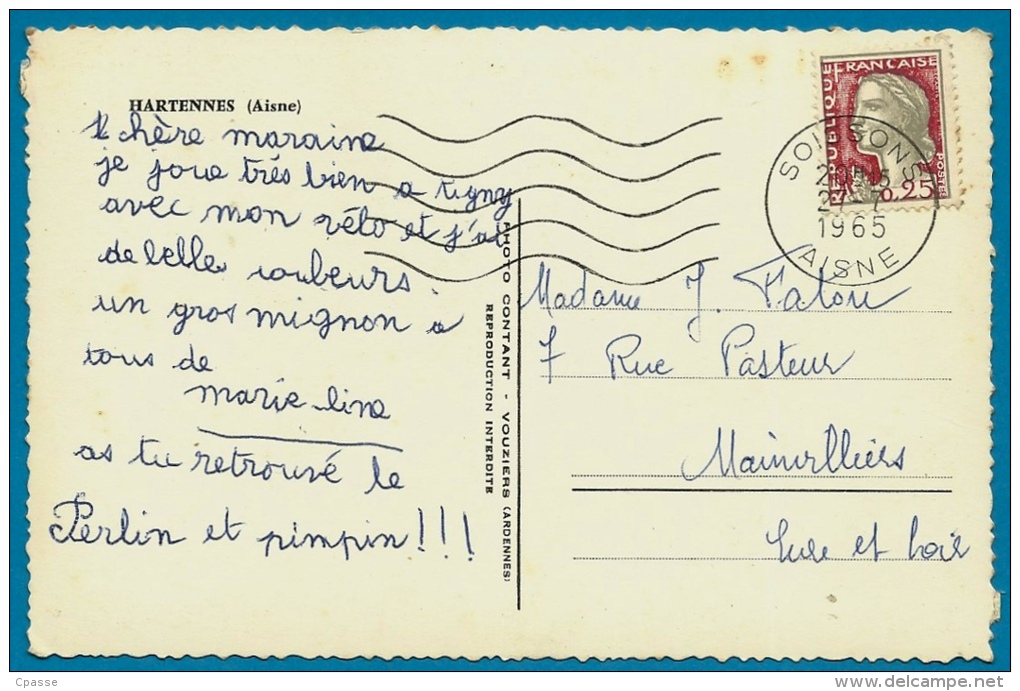 HARTENNES (Aisne)
chère maraine
je joue trés bien a tigny
avec mon vélo et j'ai
de belle couleurs.
un gros mignon a
tous de
marie line
as tu retrouvé le
Perlin et pimpin !!!
PHOTO CONTANT - VOUZIERS (ARDENNES)
REPRODUCTION INTERDITE
REPUBLIQUE FRANÇAISE
POSTES
0,25
SOISSONS
1965
AISNE
Madame J.
7 Rue Pasteur
Mainvilliers
Eure et Loir
Cpasse
delcampe.net